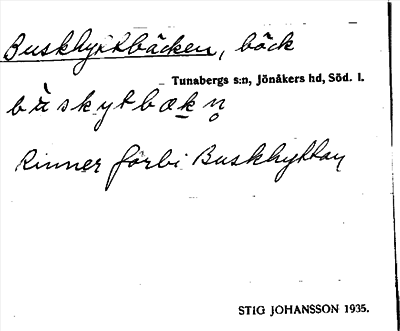 Buskhyttbäcken, bäck
Tunabergs s:n, Jönåkers hd, Söd. l.
bùskytbækn̥
Rinner förbi Buskhyttan
STIG JOHANSSON 1935.